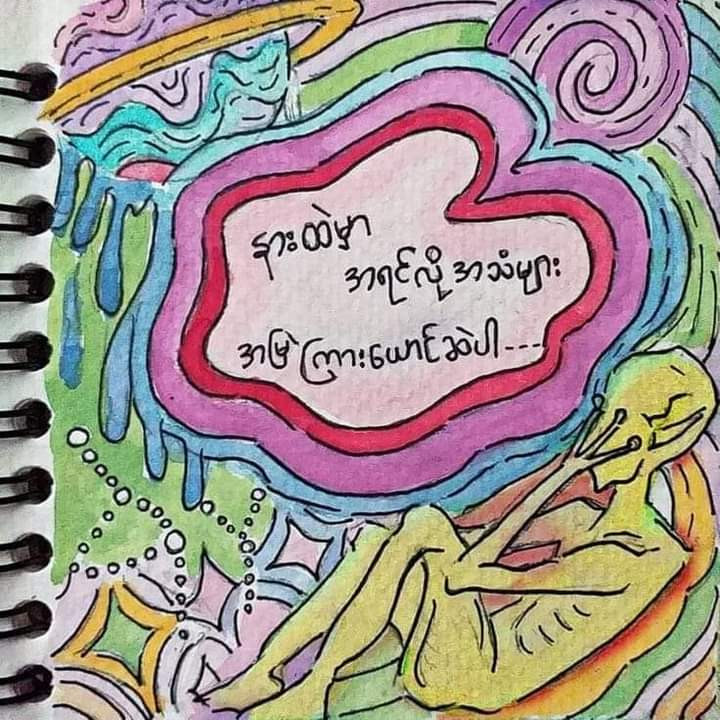 နားထဲမှာ
အရင်လို အသံများ
အမြဲကြားယောင်ဆဲပါ---